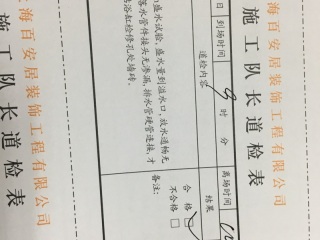 海百安居装饰工程有限公司
施工队长道检表
日
到场时间
9时 分
离场时间
道检内容
结果
盛水试验，盛水量到溢水口，放水通畅无
落水管件接头无渗漏，排水管硬管连接，才
浴缸检修孔处墙砖。
合格
不合格
备注：
上海百安居装饰工程有限公司
施工队长道检表
限公司
道检表